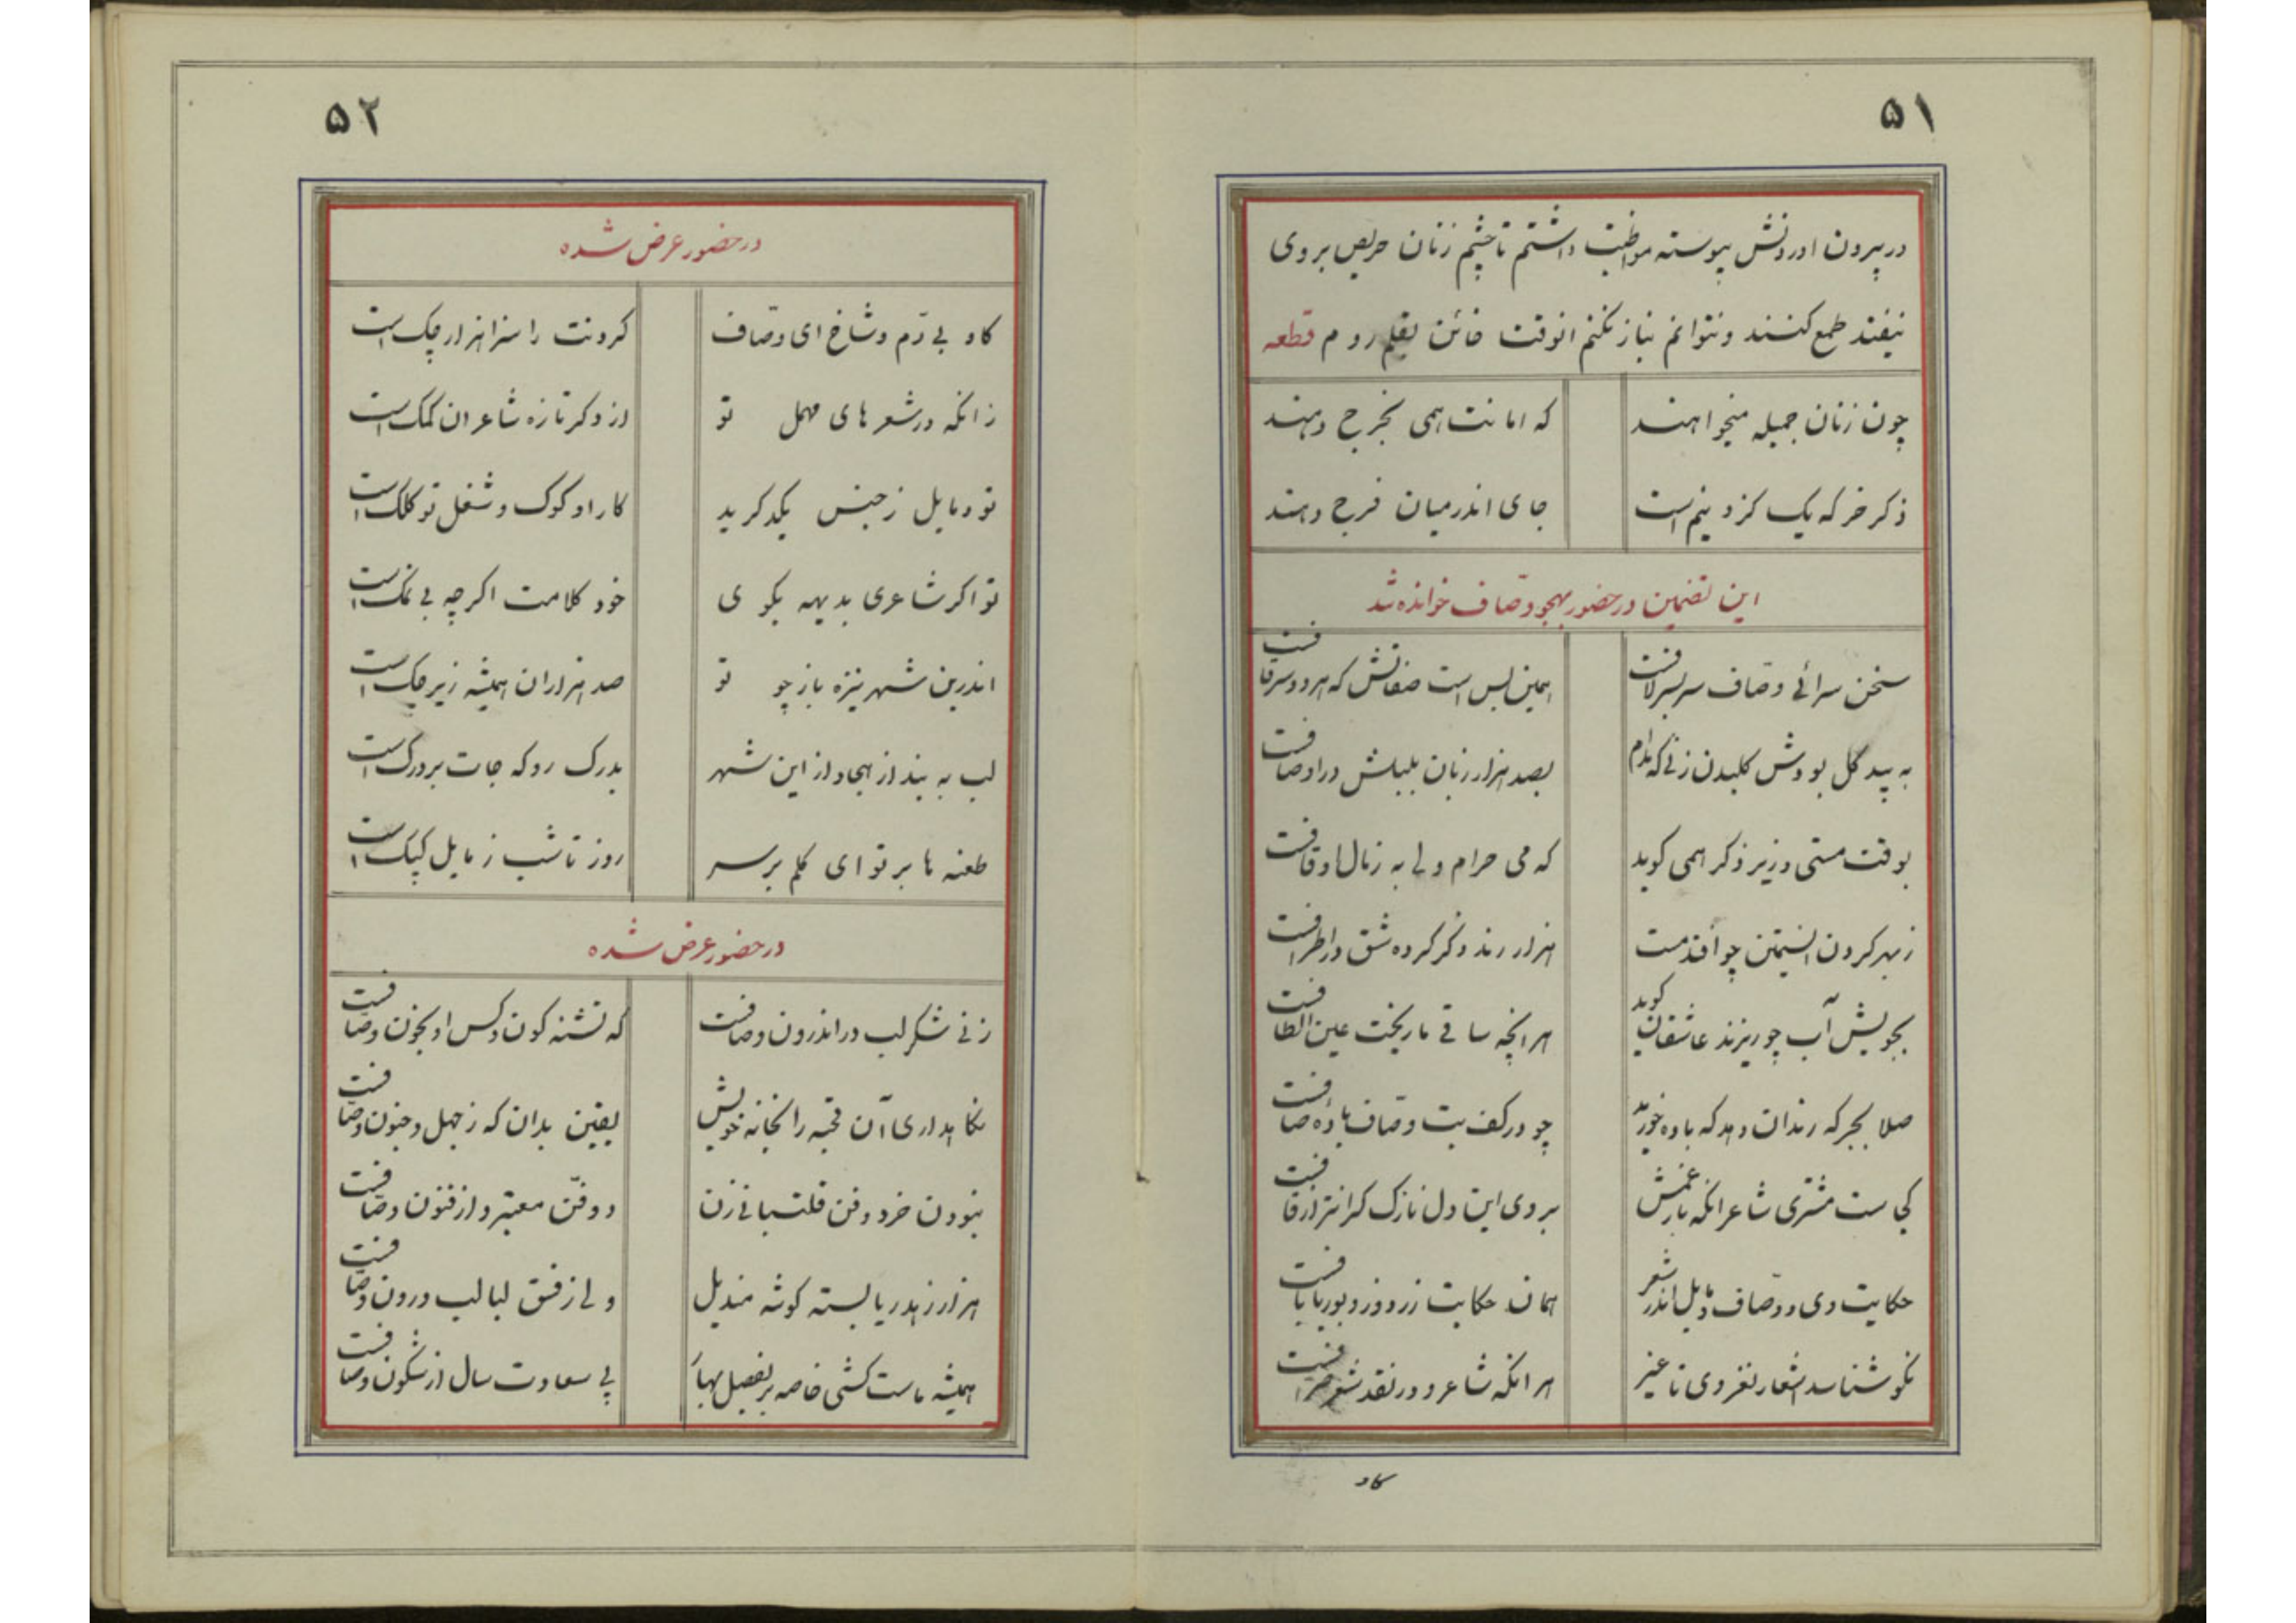 ۵۱
در بیرون اوردنش پیوسته مواظبت داشتم تا چشم زنان حریص بروی
نیفتد طمع کنند و نتوانم نیاز نکنم انوقت خائن بقلم روم قطعه
چون زنان جمیله میخواهند که امانت همی بخرج دهند
ذکر خر که یک کز و نیم است جای اندر میان فرج دهند
این تضمین در حضور بهجو وصّاف خوانده شد
سخن سرائی وصّاف سربسر لافست همین بس است صفاتش که هر دو سر قافست
به پید کل بودش کلبدن زنی که مدام بصد هزار زبان بلبلش در اوصافست
بوقت مستی و زیر ذکر همی کوید که می حرام ولی به زمال اوقافست
ز بهر کردن السیمتن چو افتد مست هزار رند ذکر کرده شق در اطرافست
بجویش آب چو ریزند عاشقان کوید هر انچه ساقی ما ریخت عین الطافست
صلا بجرکه رندان دهد که باده خورید چو در کف بت وصّاف بادهٔ صافست
کجاست مشتری شاعر انکه بار غمش بروی این دل نازک کرانتر از قافست
حکایت وی و وصّاف و مایل اندر شعر همان حکایت زردوز و بوریا بافست
نکو شناسد اشعار نغز وی تا غیر هر انکه شاعر و در نقد شعر صرافست
کاو
۵۲
در حضور عرض شده
کاو بی دّم و شاخ ای وصّاف کردنت را سزا هزار چک است
زانکه در شعر های مهمل تو از ذکر تازه شاعران کمک است
تو و مایل ز جنس یکدکرید کار او کوک و شغل تو کلک است
تو اکر شاعری بدیهه بکوی خود کلامت اکرچه بی نمک است
اندرین شهر نیزه باز چو تو صد هزاران همیشه زیر حک است
لب به بند از هجا و از این شهر بدرک رو که جات بر درک است
طعنه ها بر تو ای کلم بر سر روز تا شب ز مایل کپک است
در حضور عرض شده
زنی شکر لب در اندرون وصافست که تشنه کون و کس او بخون وصّافست
نکاهداری آن قحبه را بخانه خویش یقین بدان که ز جهل و جنون وصّافست
نبودن خرد و فن قلتبانی زن دو فنّ معتبر و از فنون وصّافست
هزار زهد ریا بسته کوشه مندیل ولی ز فسق لبالب درون وصّافست
همیشه ماست کشی خاصه بر بفصل بهار پی سعادت سال از شکون وصافست